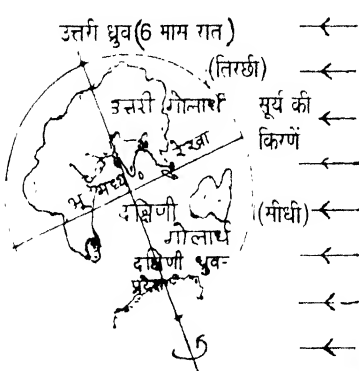 उत्तरी ध्रुव (6 मास रात)
(तिरछी)
उत्तरी गोलार्ध
सूर्य की
किरणें
भू मध्य रेखा
दक्षिणी
गोलार्ध
(सीधी)
दक्षिणी ध्रुव-
प्रदेश